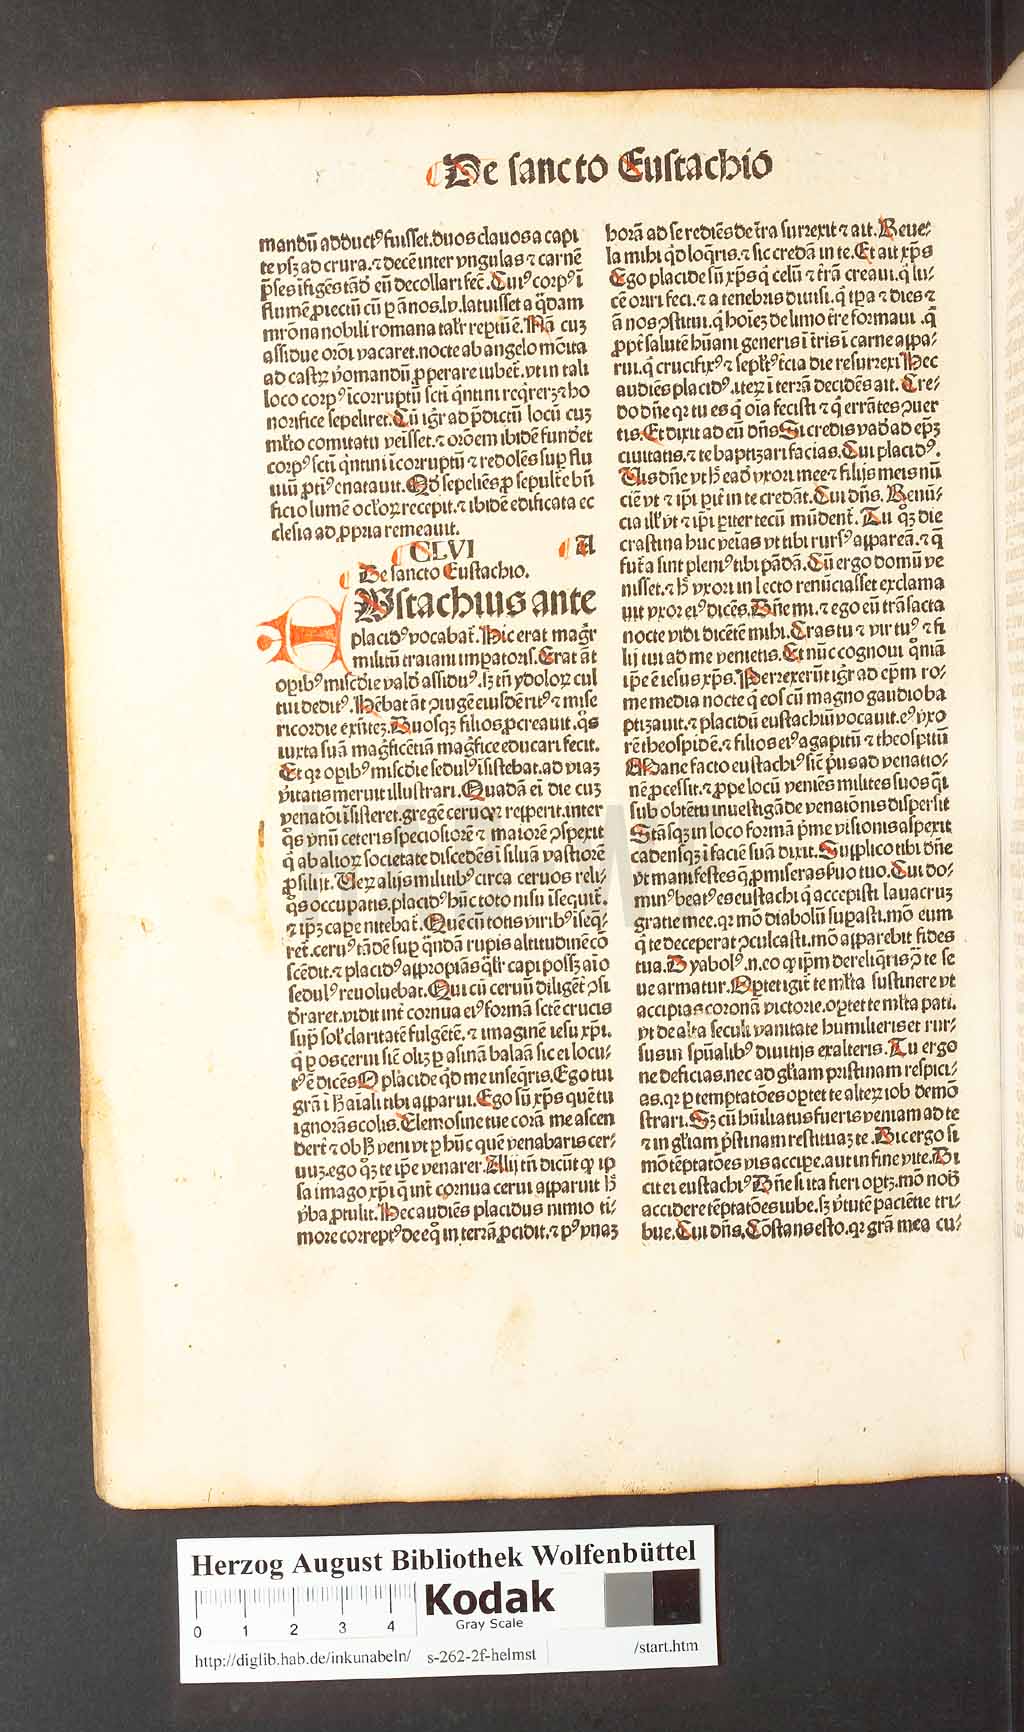 De sancto Eustachio
mandū adduct⁹ fuisset. duos clauos a capi
te vsq; ad crura. ⁊ decē inter vngulas ⁊ carnē
p̄ses ifigēs tādē eū decollari fec̄. Cui⁹ corp⁹ ī
flumē ꝓiectū cū p ānos. lv. latuisset a q̇dam
mr̄ona nobili romana talr̄ reptū ē. Nā cuꝫ
assidue orōi vacaret. nocte ab angelo mōita
ad castꝝ v̄omandū ꝓperare iubet̄. vt in tali
loco corp⁹ īcorruptū scti q̇ntini reqrerꝫ ⁊ ho
norifice sepeliret. Cū igr̄ ad p̄dictū locū cuꝫ
ml̄to comitatu veīsset. ⁊ orōem ibidē fundet
corp⁹ scti q̇ntini īcorruptū ⁊ redolēs suꝑ flu
uiū ꝓti⁹ enatauit. Qd̄ sepeliēs ꝓ sepulte bn̄
ficio lumē oclo̅ꝝ recepit. ⁊ ibidē edificata ec
clesia ad ꝓpria remeauit.
CLVI A
De sancto Eustachio.
EVstachius ante
placid⁹ vocabat̄. Hic erat magr̄
militū traiani impatoris. Erat āt
opib⁹ miscdie vald̄ assidu⁹. sꝫ tn̄ ydoloꝝ cul
tui dedit⁹. Hēbat āt ɔiugē eiusdē rit⁹ ⁊ mise
ricordie exn̄teꝫ. Duosqꝫ filios ꝓcreauit. q̊s
iuxta suā magficētiā magfice educari fecit.
Et qꝛ opib⁹ miscdie sedul⁹ īsistebat. ad viaꝫ
v̄itatis meruit illustrari. Quadā eī die cuꝫ
venatōi īsisteret. gregē ceruoꝝ reꝑperit. inter
q̊s vnū ceteris speciosiorē ⁊ maiorē ɔspexit
q̇ ab alioꝝ societate discedēs ī siluā vastiorē
ꝓsiliit. Veꝝ alijs militib⁹ circa ceruos reli-
q̊s occupatis. placid⁹ hūc toto nisu īsequit̄.
⁊ ip̄ꝫ capere nitebat̄. Quē cū totis virib⁹ īseq̄-
ret̄. ceru⁹ tādē suꝑ q̄ndā rupis altitudinē cō
scēdit. ⁊ placid⁹ appropiās qlr̄ capi possꝫ aīo
sedul⁹ reuoluebat. Qui cū ceruū diligēt̄ ɔsi
draret. vidit int̄ cornua ei⁹ formā scte crucis
sup̄ sol⁹ claritatē fulgētē. ⁊ imaginē iesu xp̄i.
q̇ p os cerui sic olī p asinā balaā sic ei locu-
t⁹ ē dicēs O placide qd̄ me inseqris. Ego tui
grā ī h̄ aīali tibi apparui. Ego sū xp̄s quē tu
ignorās colis. Elemosine tue corā me ascen
dert̄ ⁊ ob h̄ veni vt p hūc quē venabaris cer-
uuꝫ. ego q̊ꝫ te ip̄e venarer. Alij tn̄ dicūt ꝙ ip
sa imago xp̄i q̄ int̄ cornua cerui apparuit h̄
v̄ba ꝓtulit. Hec audiēs placidus nimio ti-
more correpť de eq̊ in terrā ꝓcidit. ⁊ p⁹ vnaꝫ
horā ad se rediēs de tr̄a surrexit ⁊ ait. Reue-
la mihi qd̄ loqris. ⁊ sic credā in te. Et ait xp̄s
Ego placide sū xp̄s q̇ celū ⁊ trā creaui. q̇ lu-
cē oriri feci. ⁊ a tenebris diuisi. q̇ tpa ⁊ dies ⁊
ānos ɔstitui. q̇ hoīeꝫ de limo tr̄e formaui. q̇
ꝓpt̄ salutē hūani generis ī tr̄is ī carne appa-
rui. q̇ crucifix⁹ ⁊ seplt⁹ t̄cia die resurrexi Hec
audiēs placid⁹. iteꝝ ī terrā decidēs ait. Cre-
do dn̄e qꝛ tu es q̇ oīa fecisti ⁊ q̇ errātes ɔuer
tis. Et dixit ad eū dn̄s Si credis vad̄ ad epꝫ
ciuitatis. ⁊ te baptizari facias. Cui placid⁹.
Vis dn̄e vt h̄ ead̄ vxori mee ⁊ filijs meis nū
ciē vt ⁊ ip̄i pit̄ in te credāt. Cui dn̄s. Renū-
cia ill̄ vt ⁊ ip̄i piter tecū mūdent̄. Tu q̊ꝫ die
crastina huc veīas vt tibi rurs⁹ appareā. ⁊ q̄
fut̄a sunt pleni⁹ tibi pādā. Cū ergo domū ve
nisset. ⁊ h̄ vxori in lecto renūciasset exclama
uit vxor ei⁹ dicēs. Dn̄e mi. ⁊ ego eū trāsacta
nocte vidi dicētē mihi. Cras tu ⁊ vir tu⁹ ⁊ fi
lij tui ad me venietis. Et nūc cognoui qm̄
ip̄e ē iesus xp̄s. Perrexerūt igr̄ ad ep̄m ro-
me media nocte q̇ eos cū magno gaudio ba
ptizauit. ⁊ placidū eustachiū vocauit. ei⁹ vxo
rē theospidē. ⁊ filios ei⁹ agapitū ⁊ theospitū
Mane facto eustachi⁹ sic p̄us ad venatio-
nē ꝓcessit. ⁊ ꝓpe locū veniēs milites suos q̄si
sub obtētu inuestigāde venatōnis dispersit
Stāsqꝫ in loco formā p̄me visionis aspexit
cadensqꝫ ī faciē suā dixit. Supplico tibi dn̄e
vt manifestes q̄ ꝓmiseras s̄uo tuo. Cui do-
min⁹. beat⁹ es eustachi q̇ accepisti lauacruꝫ
gratie mee. qꝛ mō diabolū supasti. mō eum
q̇ te deceperat ɔculcasti. mō apparebit fides
tua. Dyabol⁹. n. eo ꝙ ip̄m dereliqris ɔ te se
ue armatur. Optet igit̄ te ml̄ta sustinere vt
accipias coronā victorie. optet te ml̄ta pati.
vt de alta seculi vanitate humilieris et rur-
sus in spūalib⁹ diuitijs exalteris. Tu ergo
ne deficias. nec ad gl̄iam pristinam respici-
as. qꝛ p temptatōes optet te alteꝝ iob demō
strari. Sꝫ cū humiliatus fueris veniam ad te
⁊ in gl̄iam p̄stinam restituaꝫ te. Dic ergo si
mō tēptatōes vis accipe. aut in fine vite. Di
cit ei eustachi⁹ Dn̄e si ita fieri optꝫ. mō nob̄
accidere tēptatōes iube. sꝫ v̄tutē paciētie tri-
bue. Cui dn̄s. Cōstans esto. qꝛ grā mea cu-
Herzog August Bibliothek Wolfenbüttel
0 1 2 3 4
Kodak
Gray Scale
http://diglib.hab.de/inkunabeln/ s-262-2f-helmst /start.htm